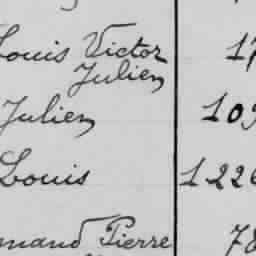 Louis Victor 17
Julien
Julien 109
Louis 1226
mand Pierre 78